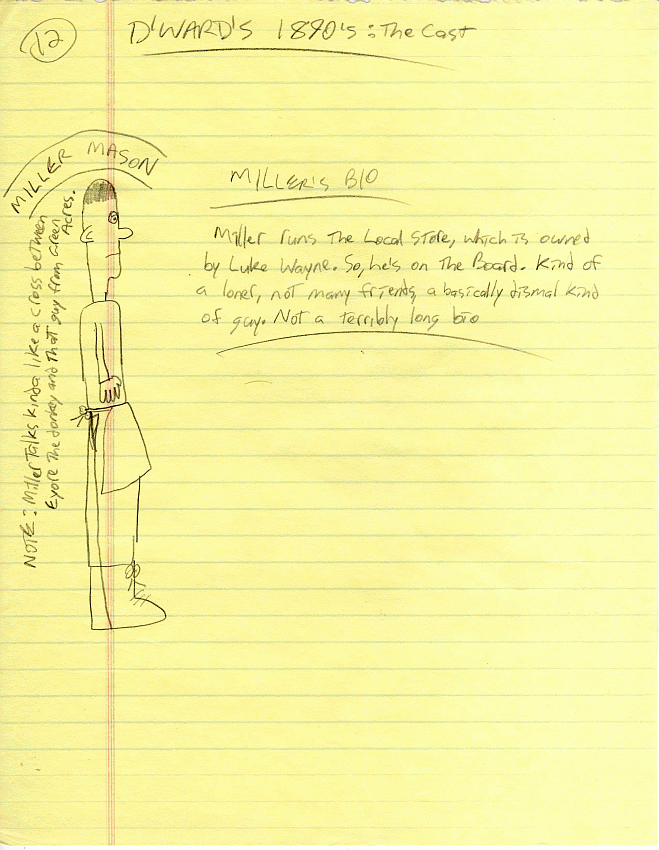 12
D'WARD'S 1890's: The Cast
MILLER MASON
NOTE: Miller Talks kinda like a cross between
Eyore The donkey and that guy from Green
Acres.
MILLER'S BIO
Miller runs The Local Store, which is owned
by Luke Wayne. So, he's on The Board. Kind of
a loner, not many friends, a basically dismal kind
of guy. Not a terribly long bio